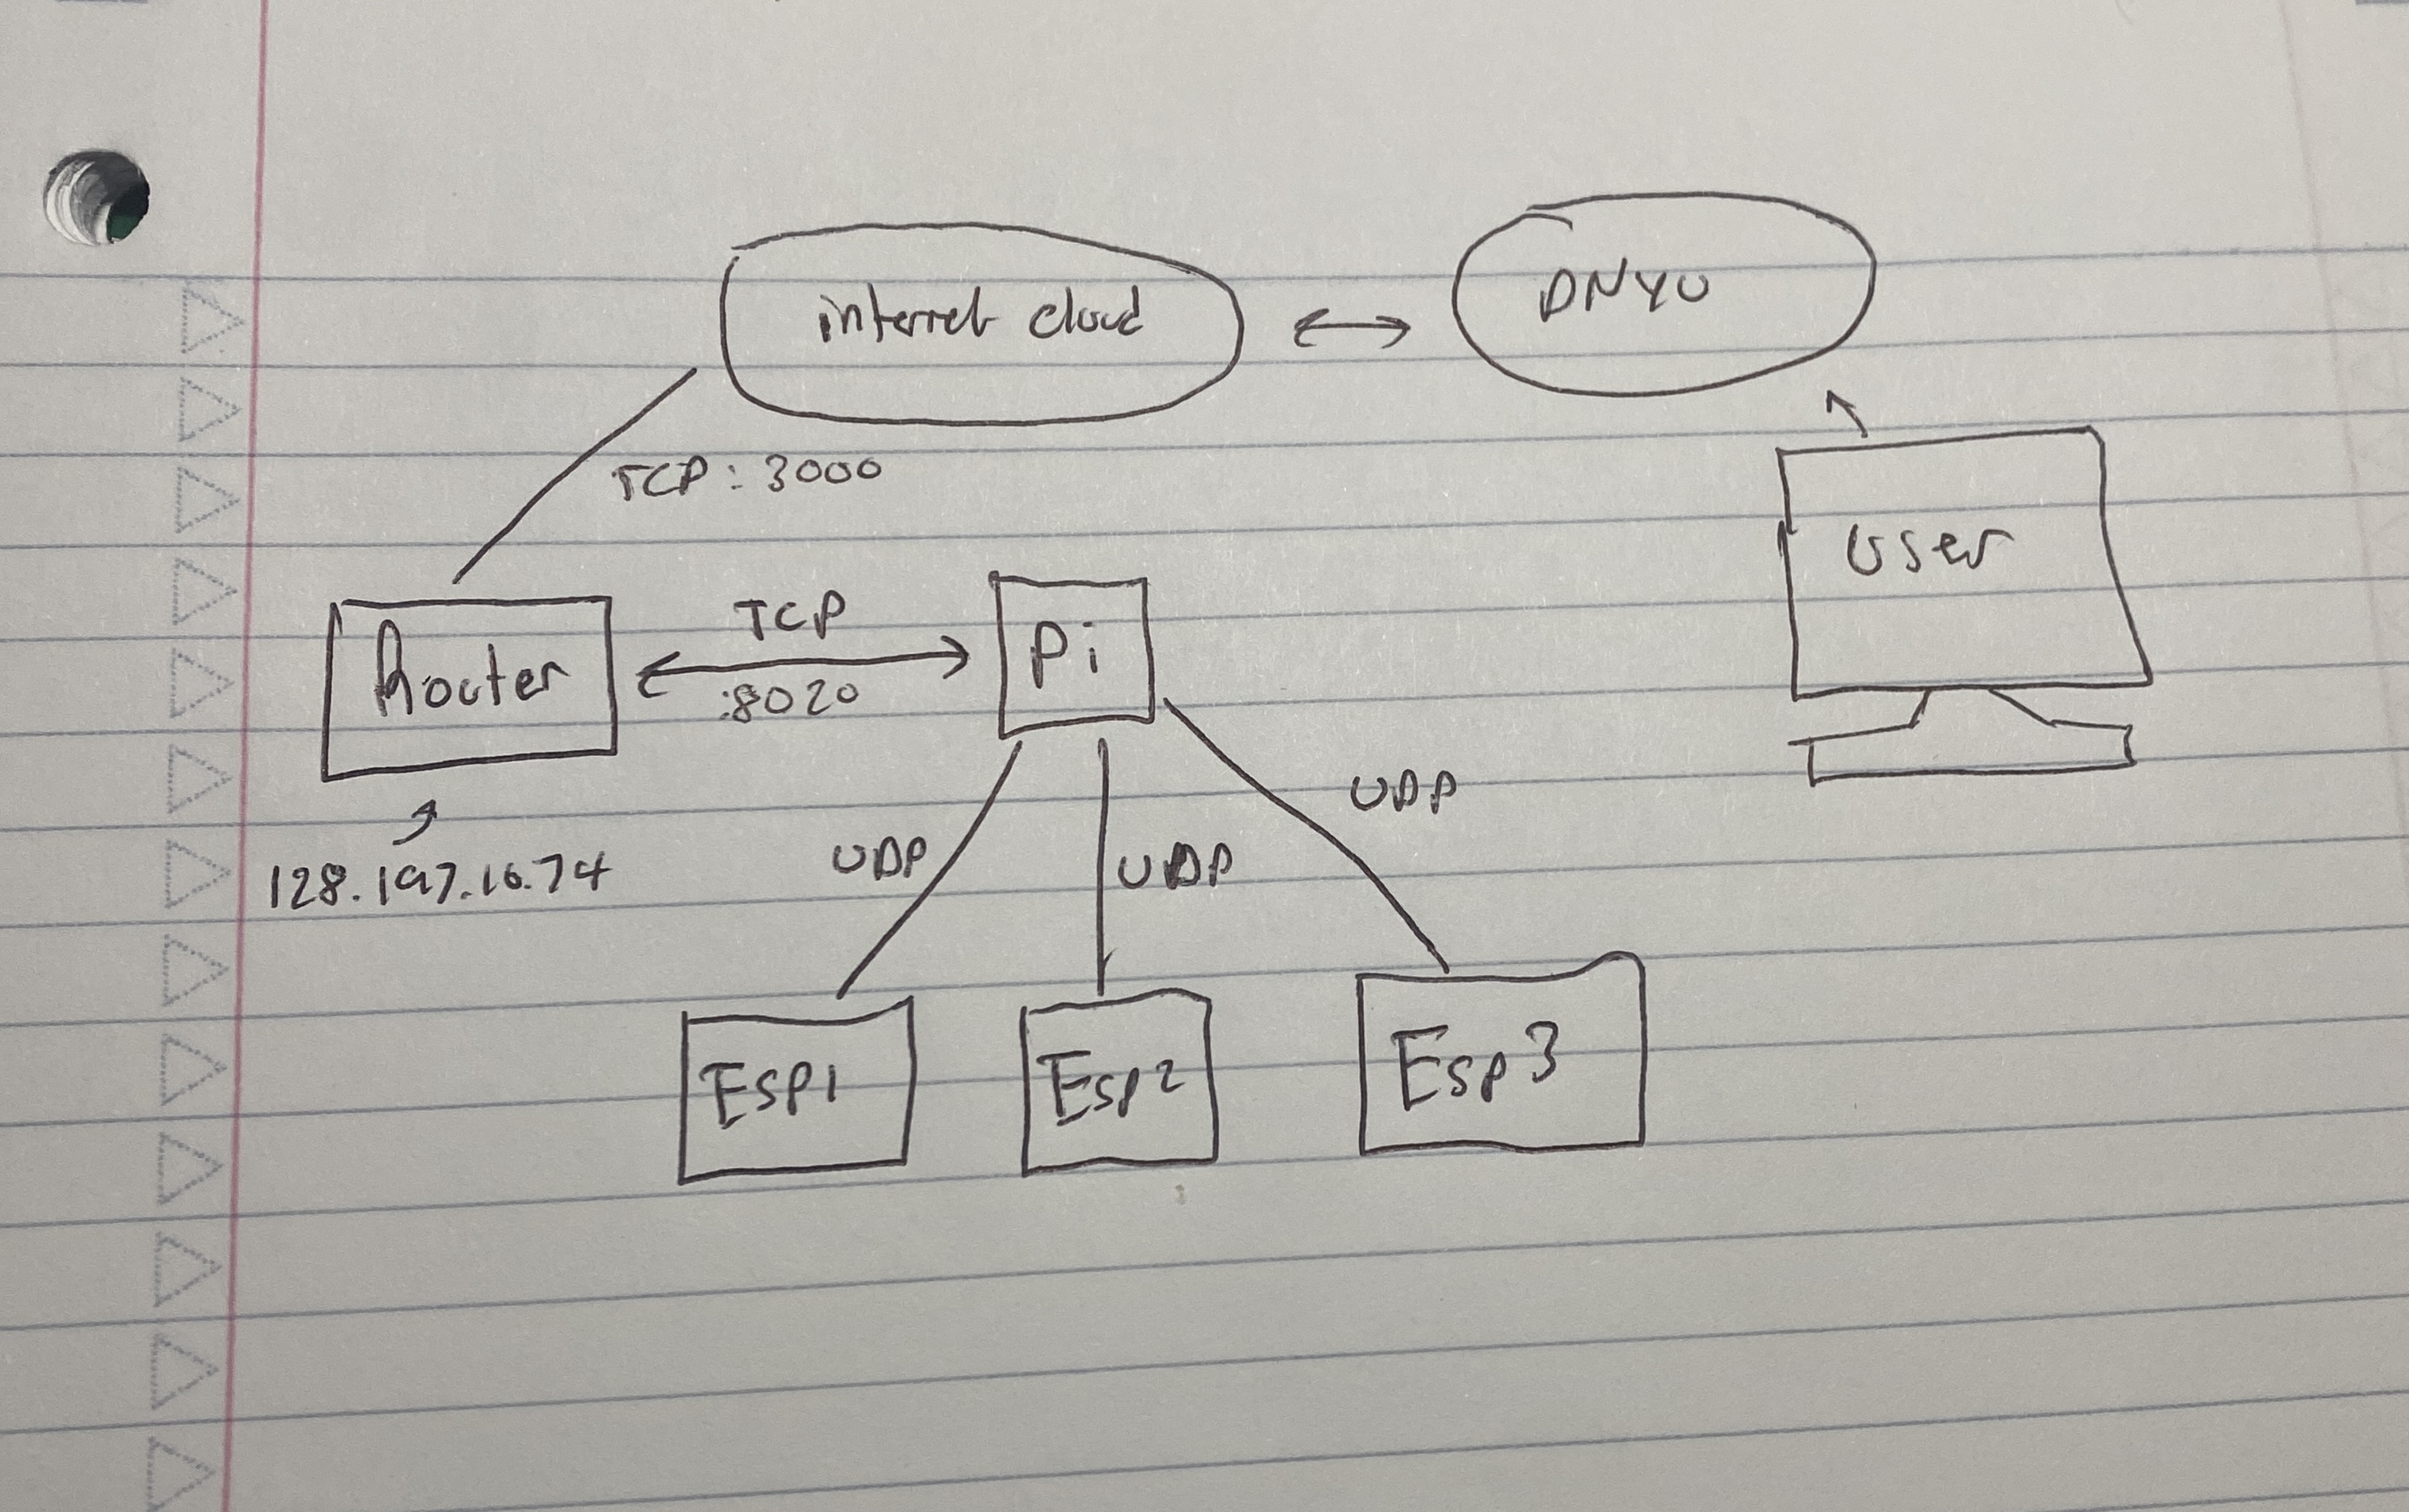 internet cloud
DNYU
TCP: 3000
User
Router
TCP
:8020
Pi
128.197.16.74
UDP
UDP
UDP
ESP1
Esp2
Esp3